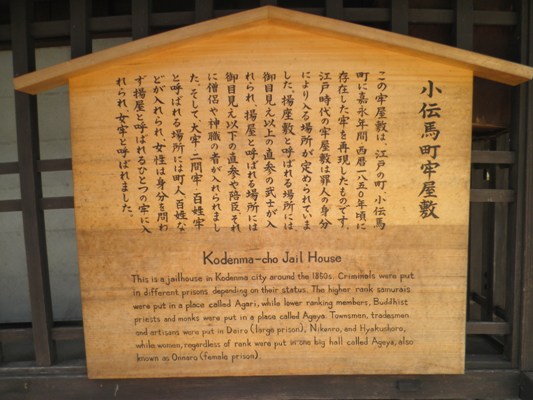 小伝馬町牢屋敷
この牢屋敷は、江戸の町、小伝馬
町に嘉永年間（西暦一八五〇年頃）に
存在した牢を再現したものです。
江戸時代の牢屋敷は罪人の身分
により入る場所が定められていま
した。揚座敷と呼ばれる場所には
御目見え以上の直参の武士が入
れられ、揚屋と呼ばれる場所には
御目見え以下の直参や陪臣、それ
に僧侶や神職の者が入れられまし
た。そして、大牢、二間牢、百姓牢
と呼ばれる場所には町人、百姓な
どが入れられ、女性は身分を問わ
ず揚屋と呼ばれるひとつの牢に入
れられ、女牢と呼ばれました。
Kodenma-cho Jail House
This is a jailhouse in Kodenma city around the 1850s. Criminals were put
in different prisons depending on their status. The higher rank samurais
were put in a place called Agari, while lower ranking members, Buddhist
priests and monks were put in a place called Agoya. Townsman, tradesman
and artisans were put in Dairo (large prison), Nikenro, and Hyakushoro,
while women, regardless of rank were put in one big hall called Agoya, also
known as Onnaro (female prison).